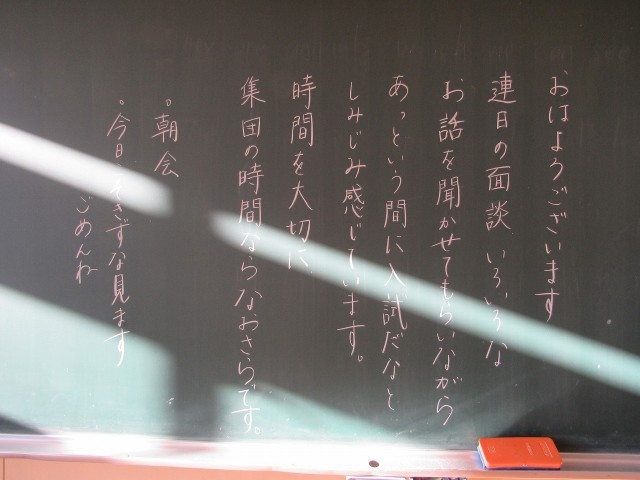 おはようございます
連日の面談、いろいろな
お話を聞かせてもらいながら
あっという間に入試だなと
しみじみ感じています。
時間を大切に、
集団の時間ならなおさらです。
。朝会
。今日、そきずな見ます
ごめんね